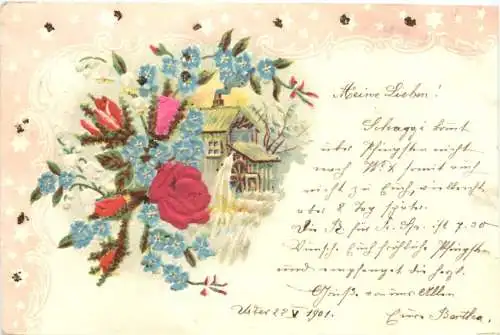 Meine Lieben!
Schaggi kommt
über Pfingsten nicht
nach W. & somit auch
nicht zu Euch, vielleicht
aber 8 Tag später.
Die R. für N. ist 7.50
Wünsche Euch fröhliche Pfingsten
und empfanget die herzl.
Grüße von uns Allen
Uster 22 V 1901. Eure Bertha.